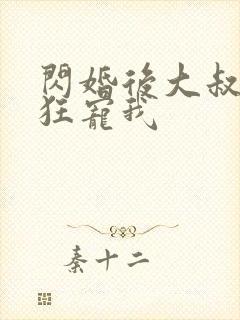 閃婚後大叔
狂寵我
秦十二